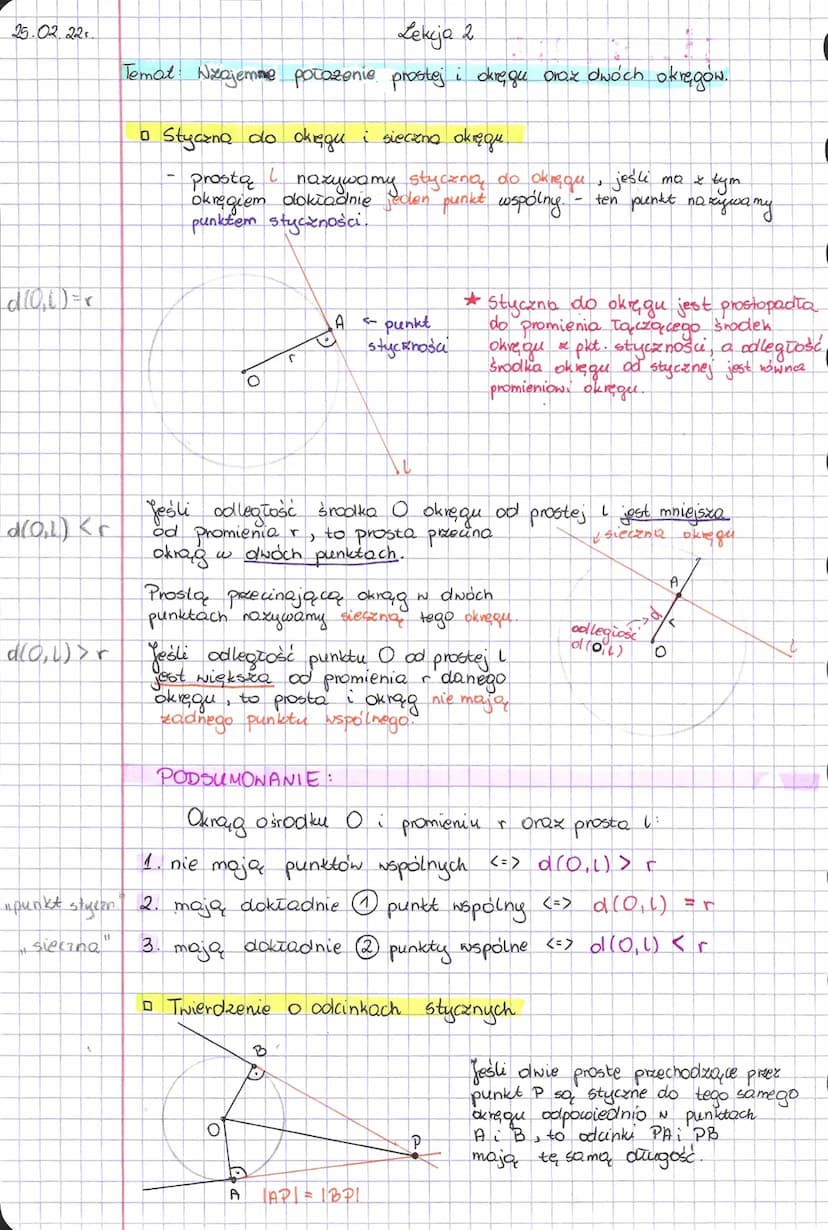 25.02.22r.
Lekcja 2
Temat: Wzajemne położenie prostej i okręgu oraz dwóch okręgów.
Styczna do okręgu i sieczna okręgu.
- prostą l nazywamy styczną do okręgu, jeśli ma z tym
okręgiem dokładnie jeden punkt wspólny. - ten punkt nazywamy
punktem styczności.
d(O,l)=r
A ← punkt
styczności
r
O
l
★ Styczna do okręgu jest prostopadła
do promienia łączącego środek
okręgu z pkt. styczności, a odległość
środka okręgu od stycznej jest równa
promieniowi okręgu.
d(O,l) < r
Jeśli odległość środka O okręgu od prostej l jest mniejsza
od promienia r, to prosta przecina
okrąg w dwóch punktach.
sieczna okręgu
Prostą przecinającą okrąg w dwóch
punktach nazywamy sieczną tego okręgu.
A
d
r
odległość
d(O,l)
O
l
d(O,l) > r
Jeśli odległość punktu O od prostej l
jest większa od promienia r danego
okręgu, to prosta i okrąg nie mają
żadnego punktu wspólnego.
PODSUMOWANIE:
Okrąg o środku O i promieniu r oraz prosta l:
1. nie mają punktów wspólnych <=> d(O,l) > r
"punkt styczn." 2. mają dokładnie 1 punkt wspólny <=> d(O,l) = r
"sieczna" 3. mają dokładnie 2 punkty wspólne <=> d(O,l) < r
Twierdzenie o odcinkach stycznych
B
O
P
A
|AP| = |BP|
Jeśli dwie proste przechodzące przez
punkt P są styczne do tego samego
okręgu odpowiednio w punktach
A i B, to odcinki PA i PB
mają tę samą długość.